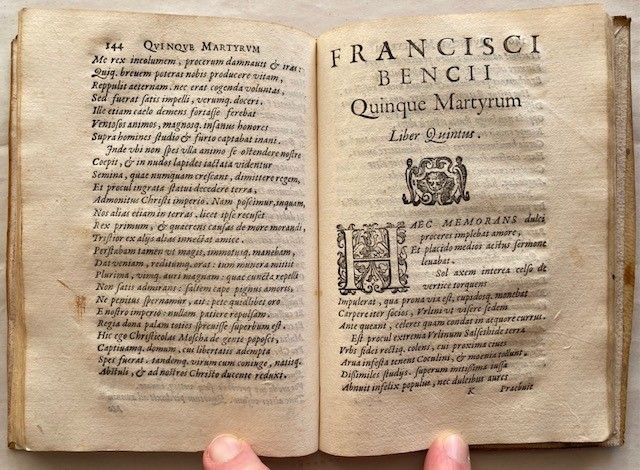 144 QVINQVE MARTYRVM
Me rex incolumem, procerum damnauit & iras:
Quiq. breuem poteras nobis producere vitam,
Reppulit aeternam. nec erat cogenda voluntas,
Sed fuerat satis impelli, verumq. doceri.
Ille etiam caelo demens fortasse ferebat
Ventosos animos, magnosq. insanus honores
Supra homines studio & furio captabat inani.
Inde vbi non spes vlla animo se ostendere nostro
Coepit, & in nudos lapides iactata videntur
Semina, quae numquam crescant, dimittere regem,
Et procul ingrata statui decedere terra,
Admonitus Christi imperio. Nam poscimur, inquam,
Nos alias etiam in terras. licet ipse recuset
Rex primum, & quaerens causas de more morandi,
Tristior ex alijs alias innectat amice.
Perstabam tamen vi magis, immotusq. manebam,
Dat veniam, reditumq. orat: tum munera mittit
Plurima, vimq. auri magnam: quae cuncta repelli
Non satis admirans: saltem cape pignus amoris,
Ne penitus spernamur, ait: pete quidlibet oro
E nostro imperio: nullam patiere repulsam.
Regia dona palam toties spreuisse superbum est.
Hic ego Christicolas Moscha de gente poposci,
Captiuamq. domum, cui libertatis adempta
Spes fuerat. tandemq. virum cum coniuge, natisq.
Abstuli, & ad nostros Christo ducente reduxi.
FRANCISCI
BENCII
Quinque Martyrum
Liber Quintus.
HAEC MEMORANS dulci
proceres implebat amore,
Et placido medios aestus sermone
leuabat.
Sol axem interea celso de
vertice torquens
Impulerat, qua prona via est, cupidosq. manebat
Carpere iter socios, Vrlini vt visere sedem
Ante queant, celeres quam condat in aequore currus.
Est procul extrema Vrlinum Salsethide terra
Vrbs fidei rectiq. colens, cui proxima ciues
Arua infesta tenent Coculini, & moenia tollunt.
Dissimiles studijs. superum mitissima iussa
Abnuit infelix populus, nec dulcibus aures
K Praebuit